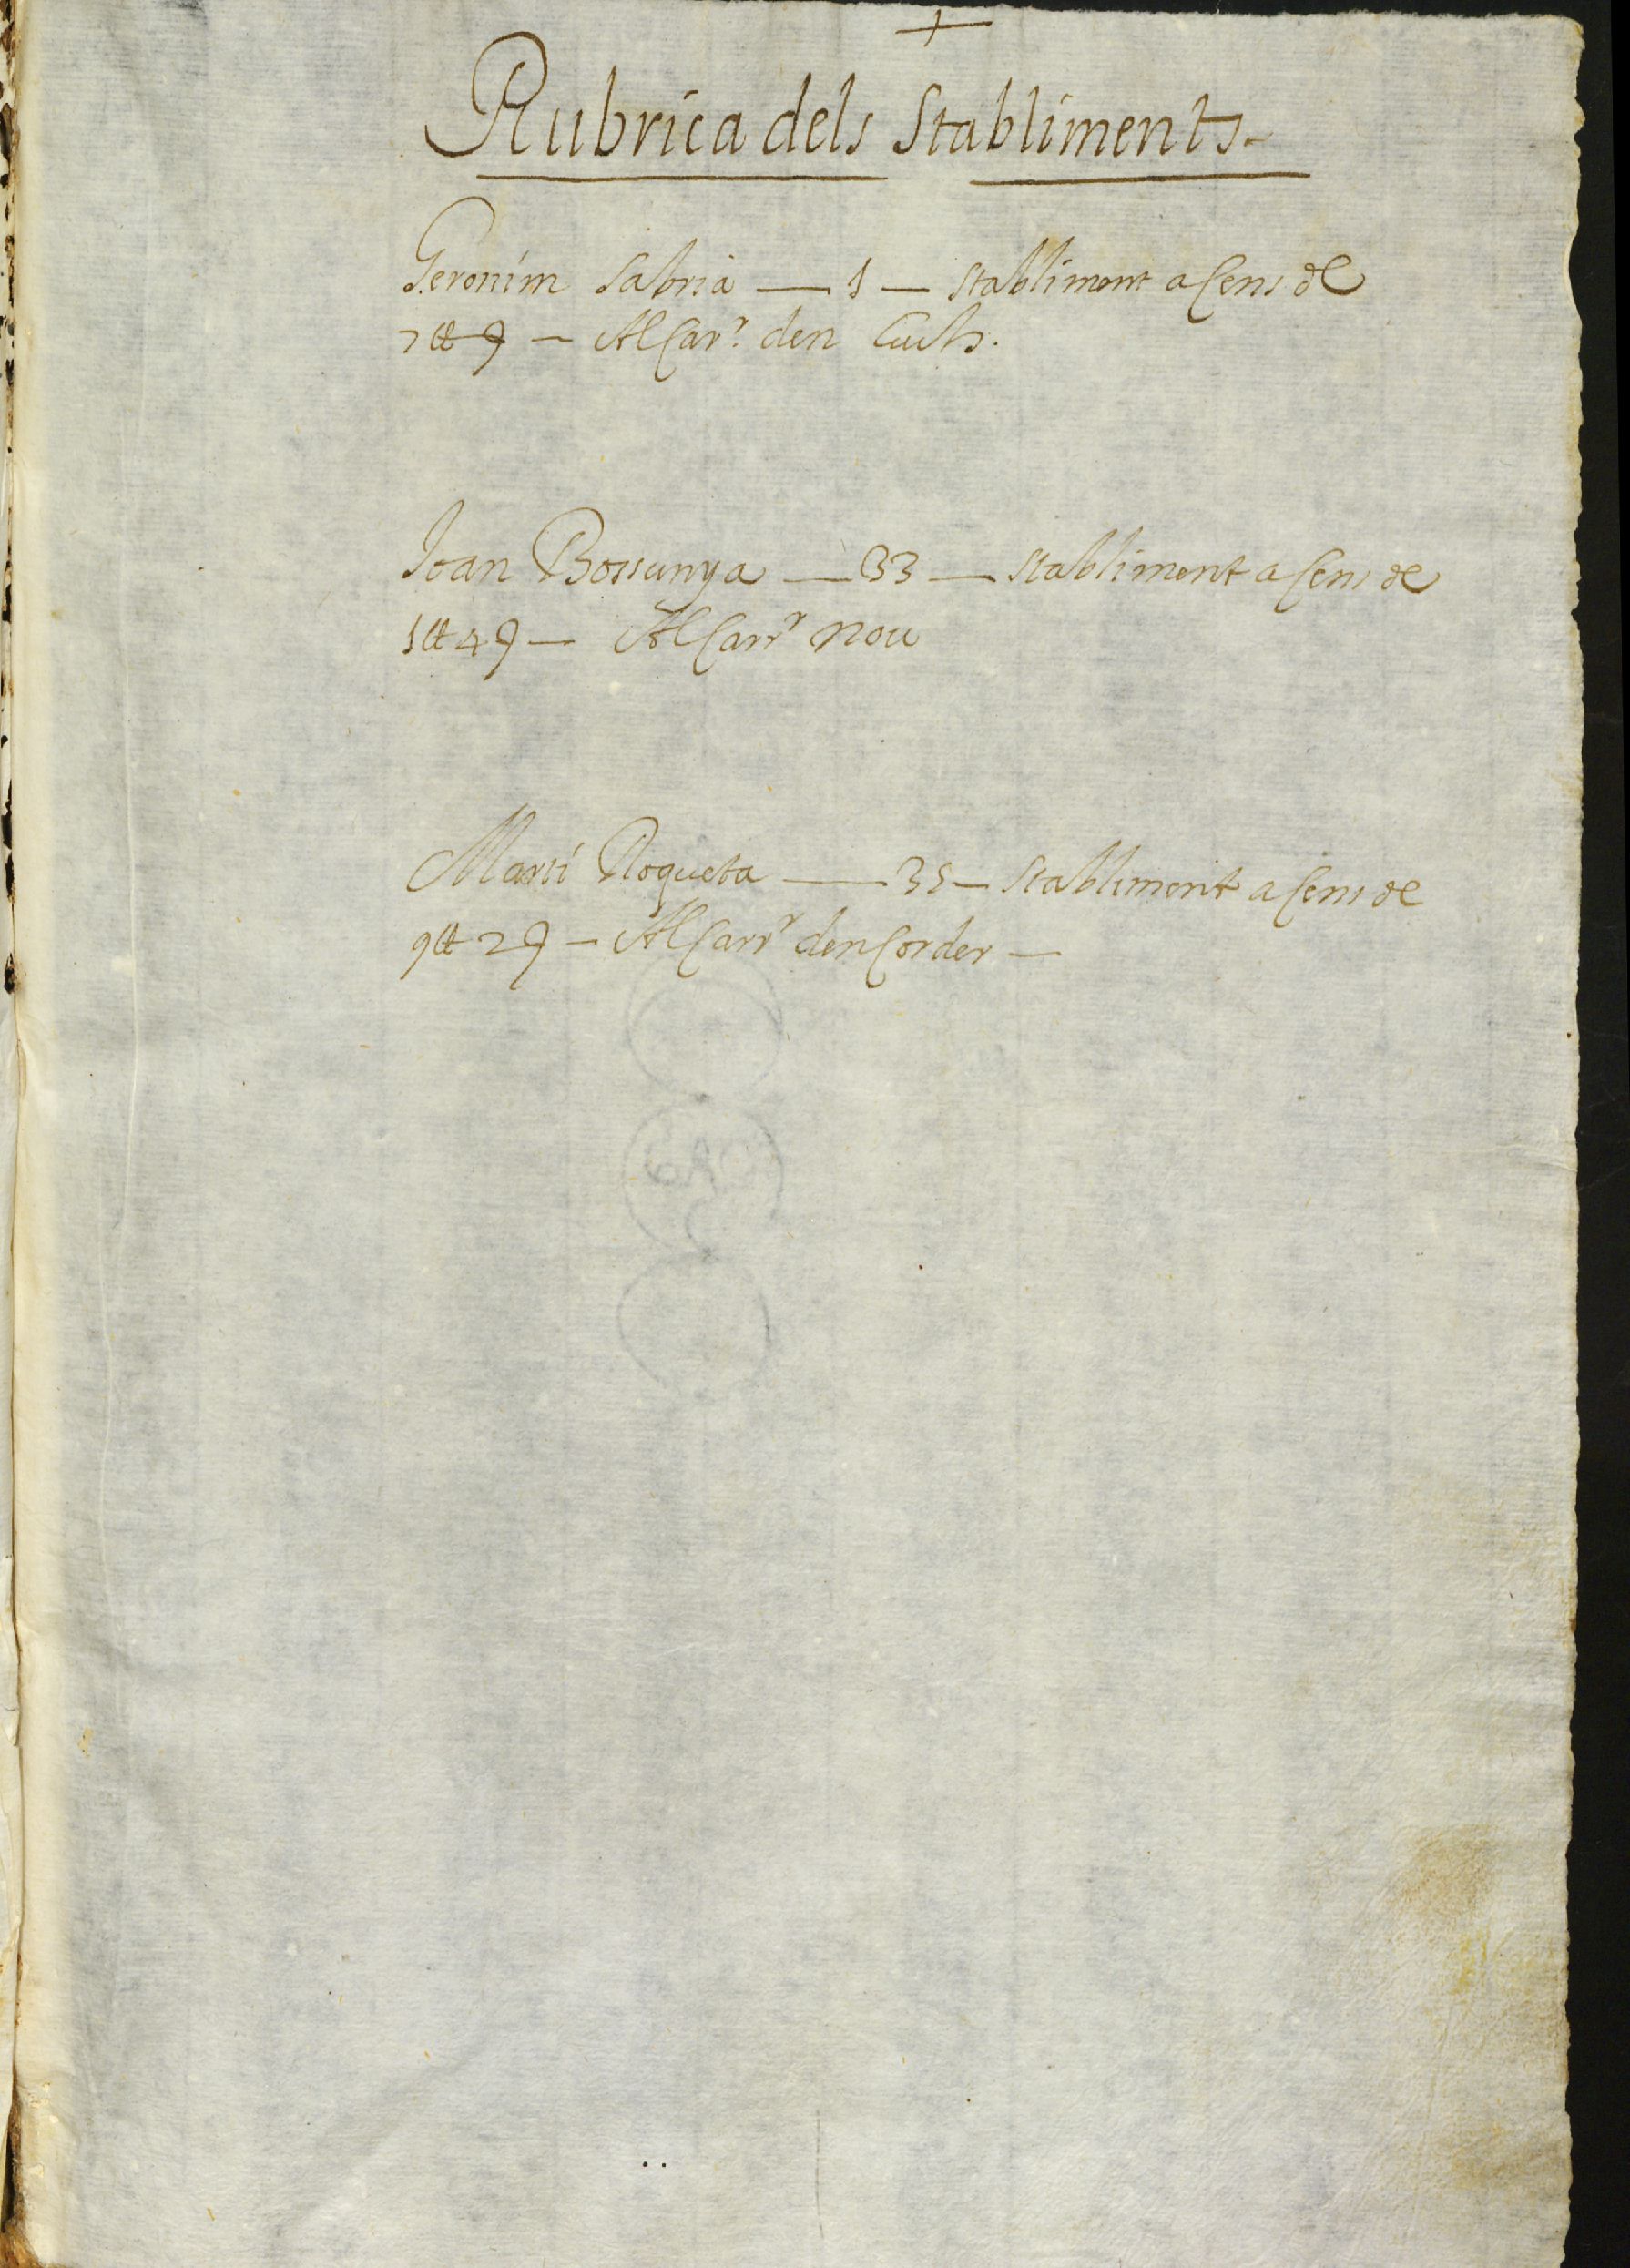 +
Rubrica dels Stabliments.
Geronim Sabria — 1 — Stabliment a Cens de
7 ₶ 9 — Al Carr. den
Joan Bossunya — 33 — Stabliment a Cens de
1 ₶ 4 9 — Al Carrr nou
Marti Roqueta — 35 — Stabliment a Cens de
9 ₶ 2 9 — Al Carrr den Corder —